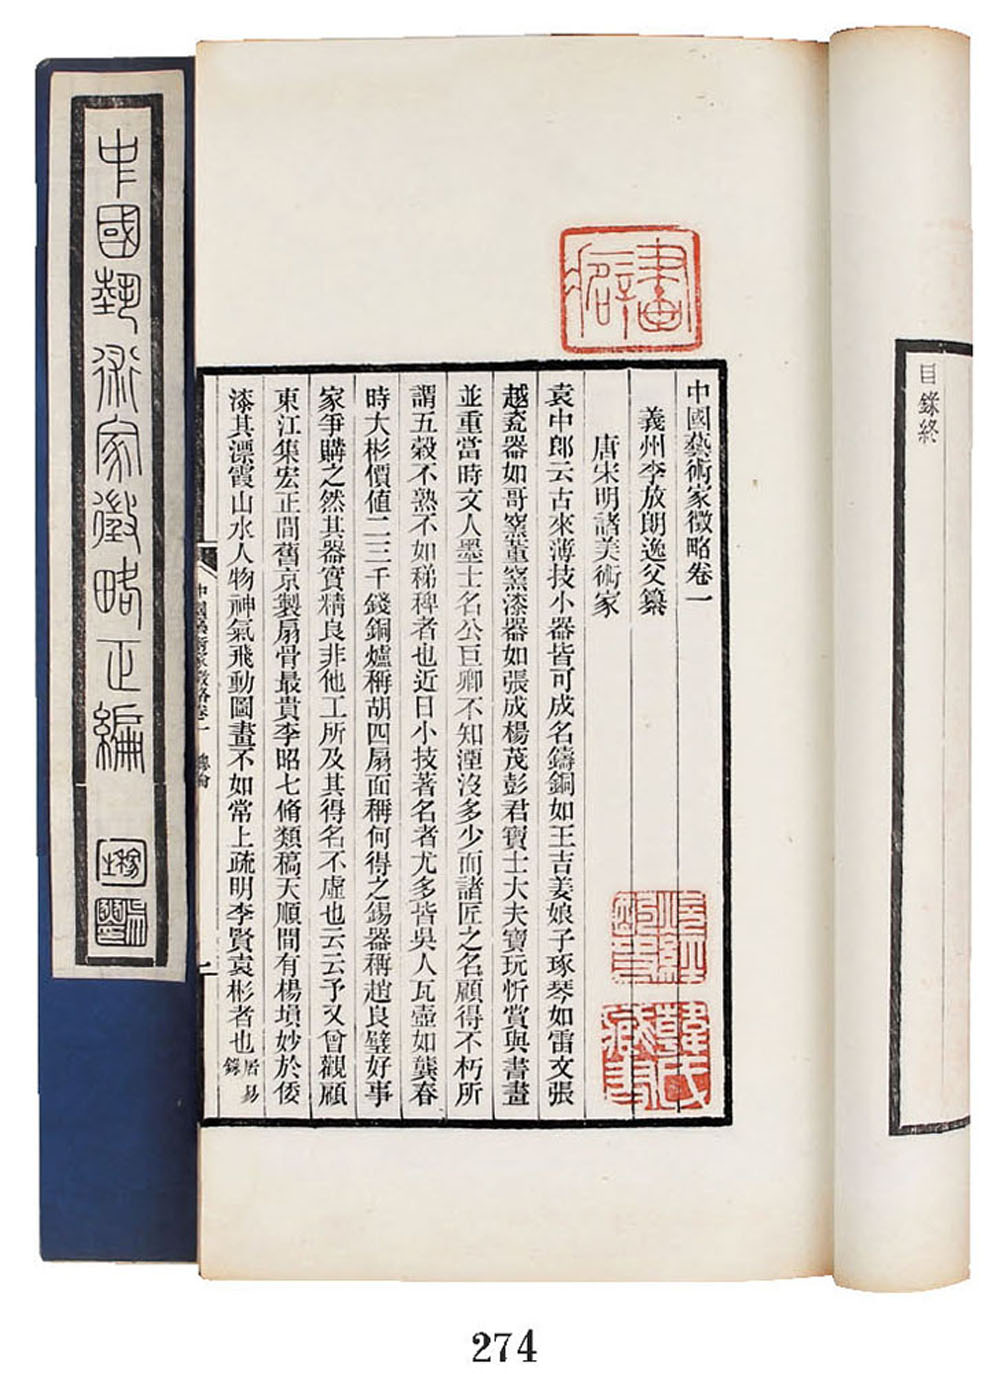 中國藝術家徵略正編
中國藝術家徵略卷一
義州李放朗逸父纂
唐宋明諸美術家
袁中郎云古來薄技小器皆可成名鑄銅如王吉姜娘子琢琴如雷文張
越瓷器如哥窯董窯漆器如張成楊茂彭君寶士大夫寶玩忻賞與書畫
並重當時文人墨士名公巨卿不知湮沒多少而諸匠之名顧得不朽所
謂五穀不熟不如稊稗者也近日小技著名者尤多皆吳人瓦壺如龔春
時大彬價值二三千錢銅爐稱胡四扇面稱何得之錫器稱趙良璧好事
家爭購之然其器實精良非他工所及其得名不虛也云云予又曾觀顧
東江集宏正間舊京製扇骨最貴李昭七脩類稿天順間有楊塤妙於倭
漆其漂霞山水人物神氣飛動圖畫不如常上疏明李賢袁彬者也居易
錄
中國藝術家徵略卷一 總論
一
目錄終
畫癖
韓氏藏書
274